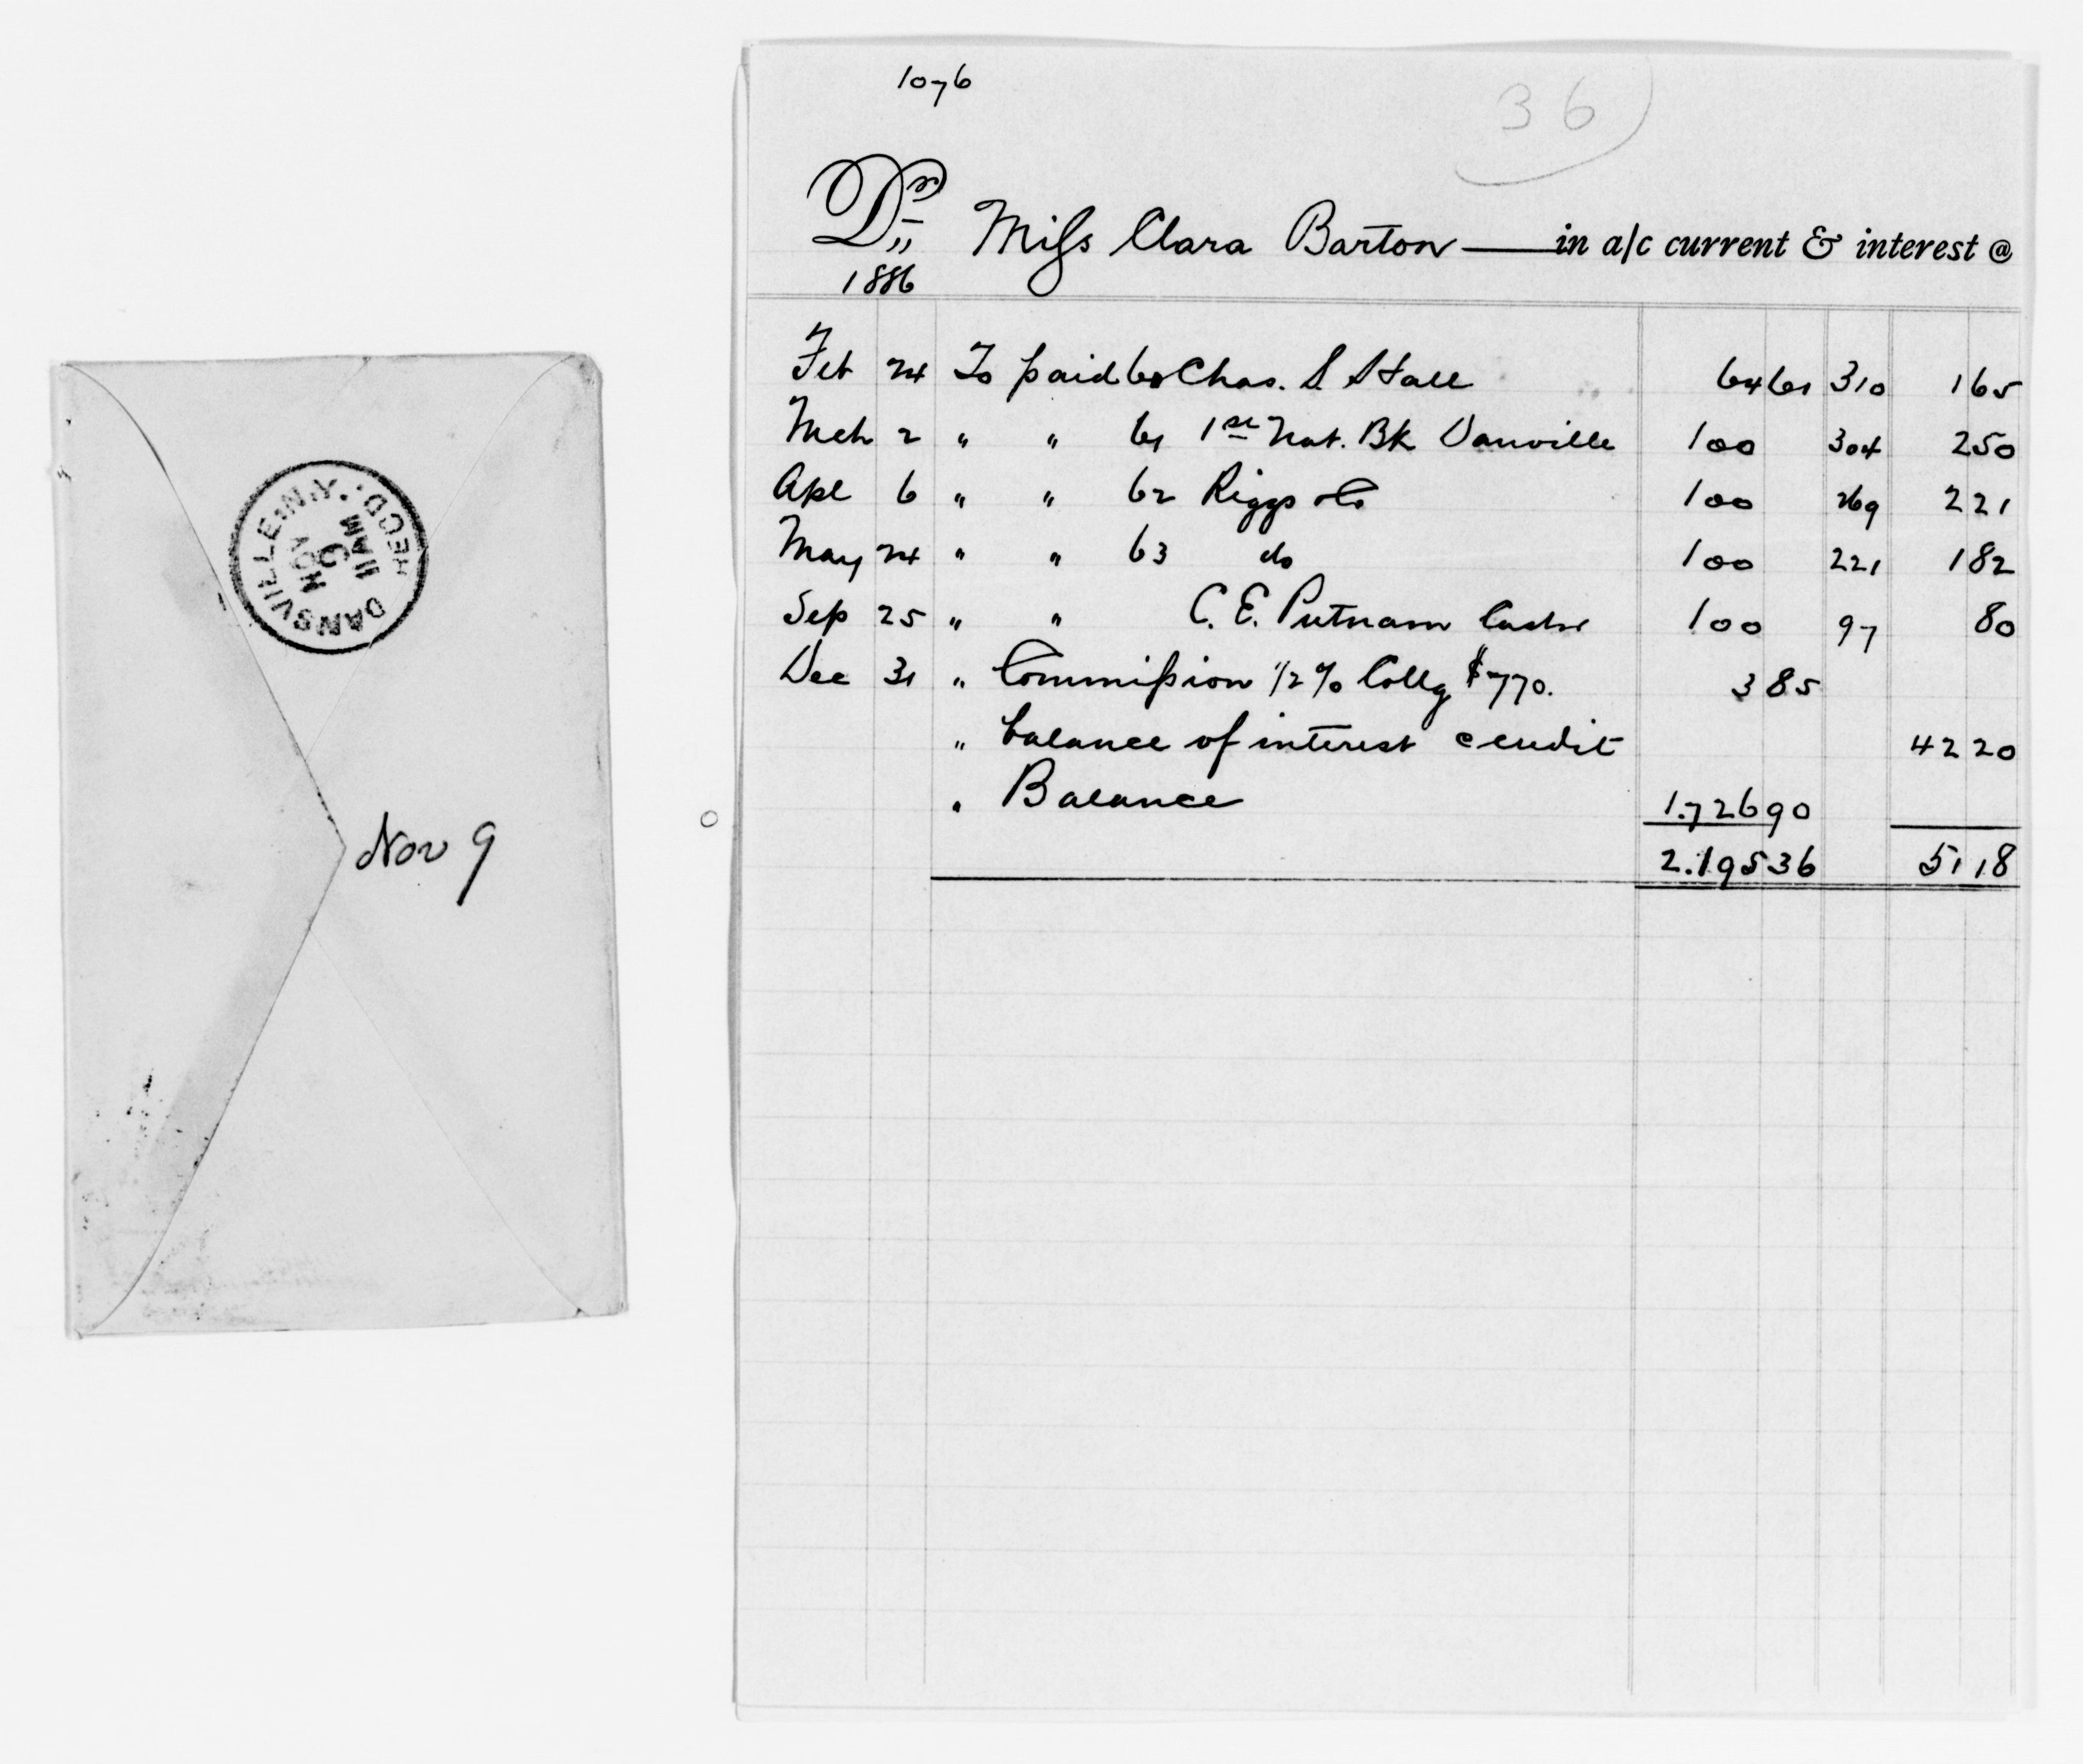 DANSVILLE. N.Y. REC'D.
NOV
9
11 AM
Nov 9
1076
36
Dr Miss Clara Barton in a/c current & interest @
1886
Feb 24 To paid 60 Chas. S Stall 64 61 310 1 65
Mch 2 " " 61 1st Nat. Bk Danville 100 304 2 50
Apl 6 " " 62 Riggs & Co 100 269 2 21
May 24 " " 63 do 100 221 1 82
Sep 25 " " C. E. Putnam Cashr 100 97 80
Dec 31 " Commission 1/2 % Collg $770. 3 85
" balance of interest credit 42 20
" Balance 1.726 90
2.195 36 51 18